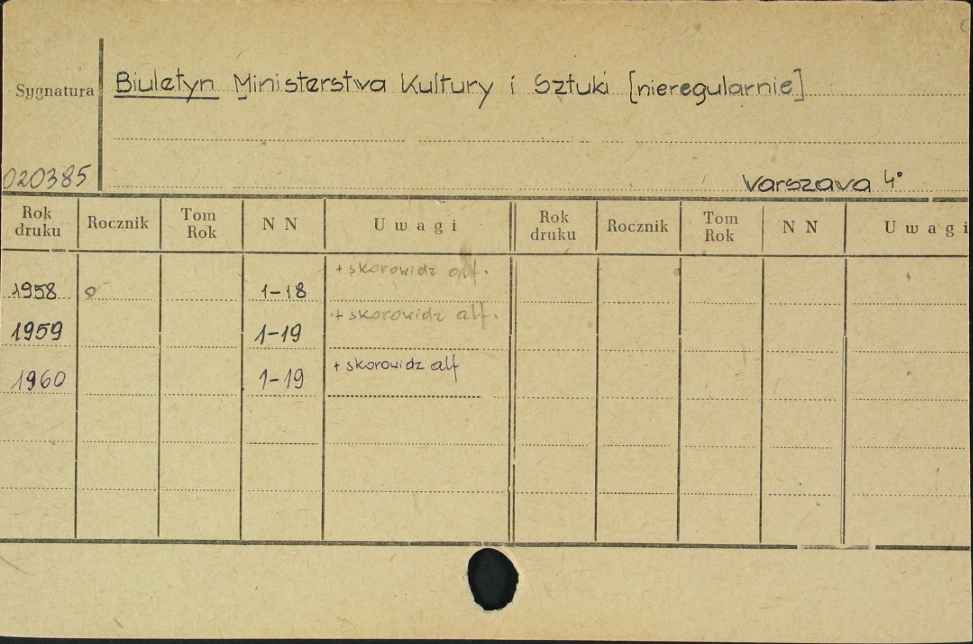 Sygnatura Biuletyn Ministerstwa Kultury i Sztuki [nieregularnie]
020385 Warszawa 4°
Rok druku Rocznik Tom Rok N N Uwagi Rok druku Rocznik Tom Rok N N Uwagi
1958 1-18 + skorowidz alf.
1959 1-19 + skorowidz alf.
1960 1-19 + skorowidz alf